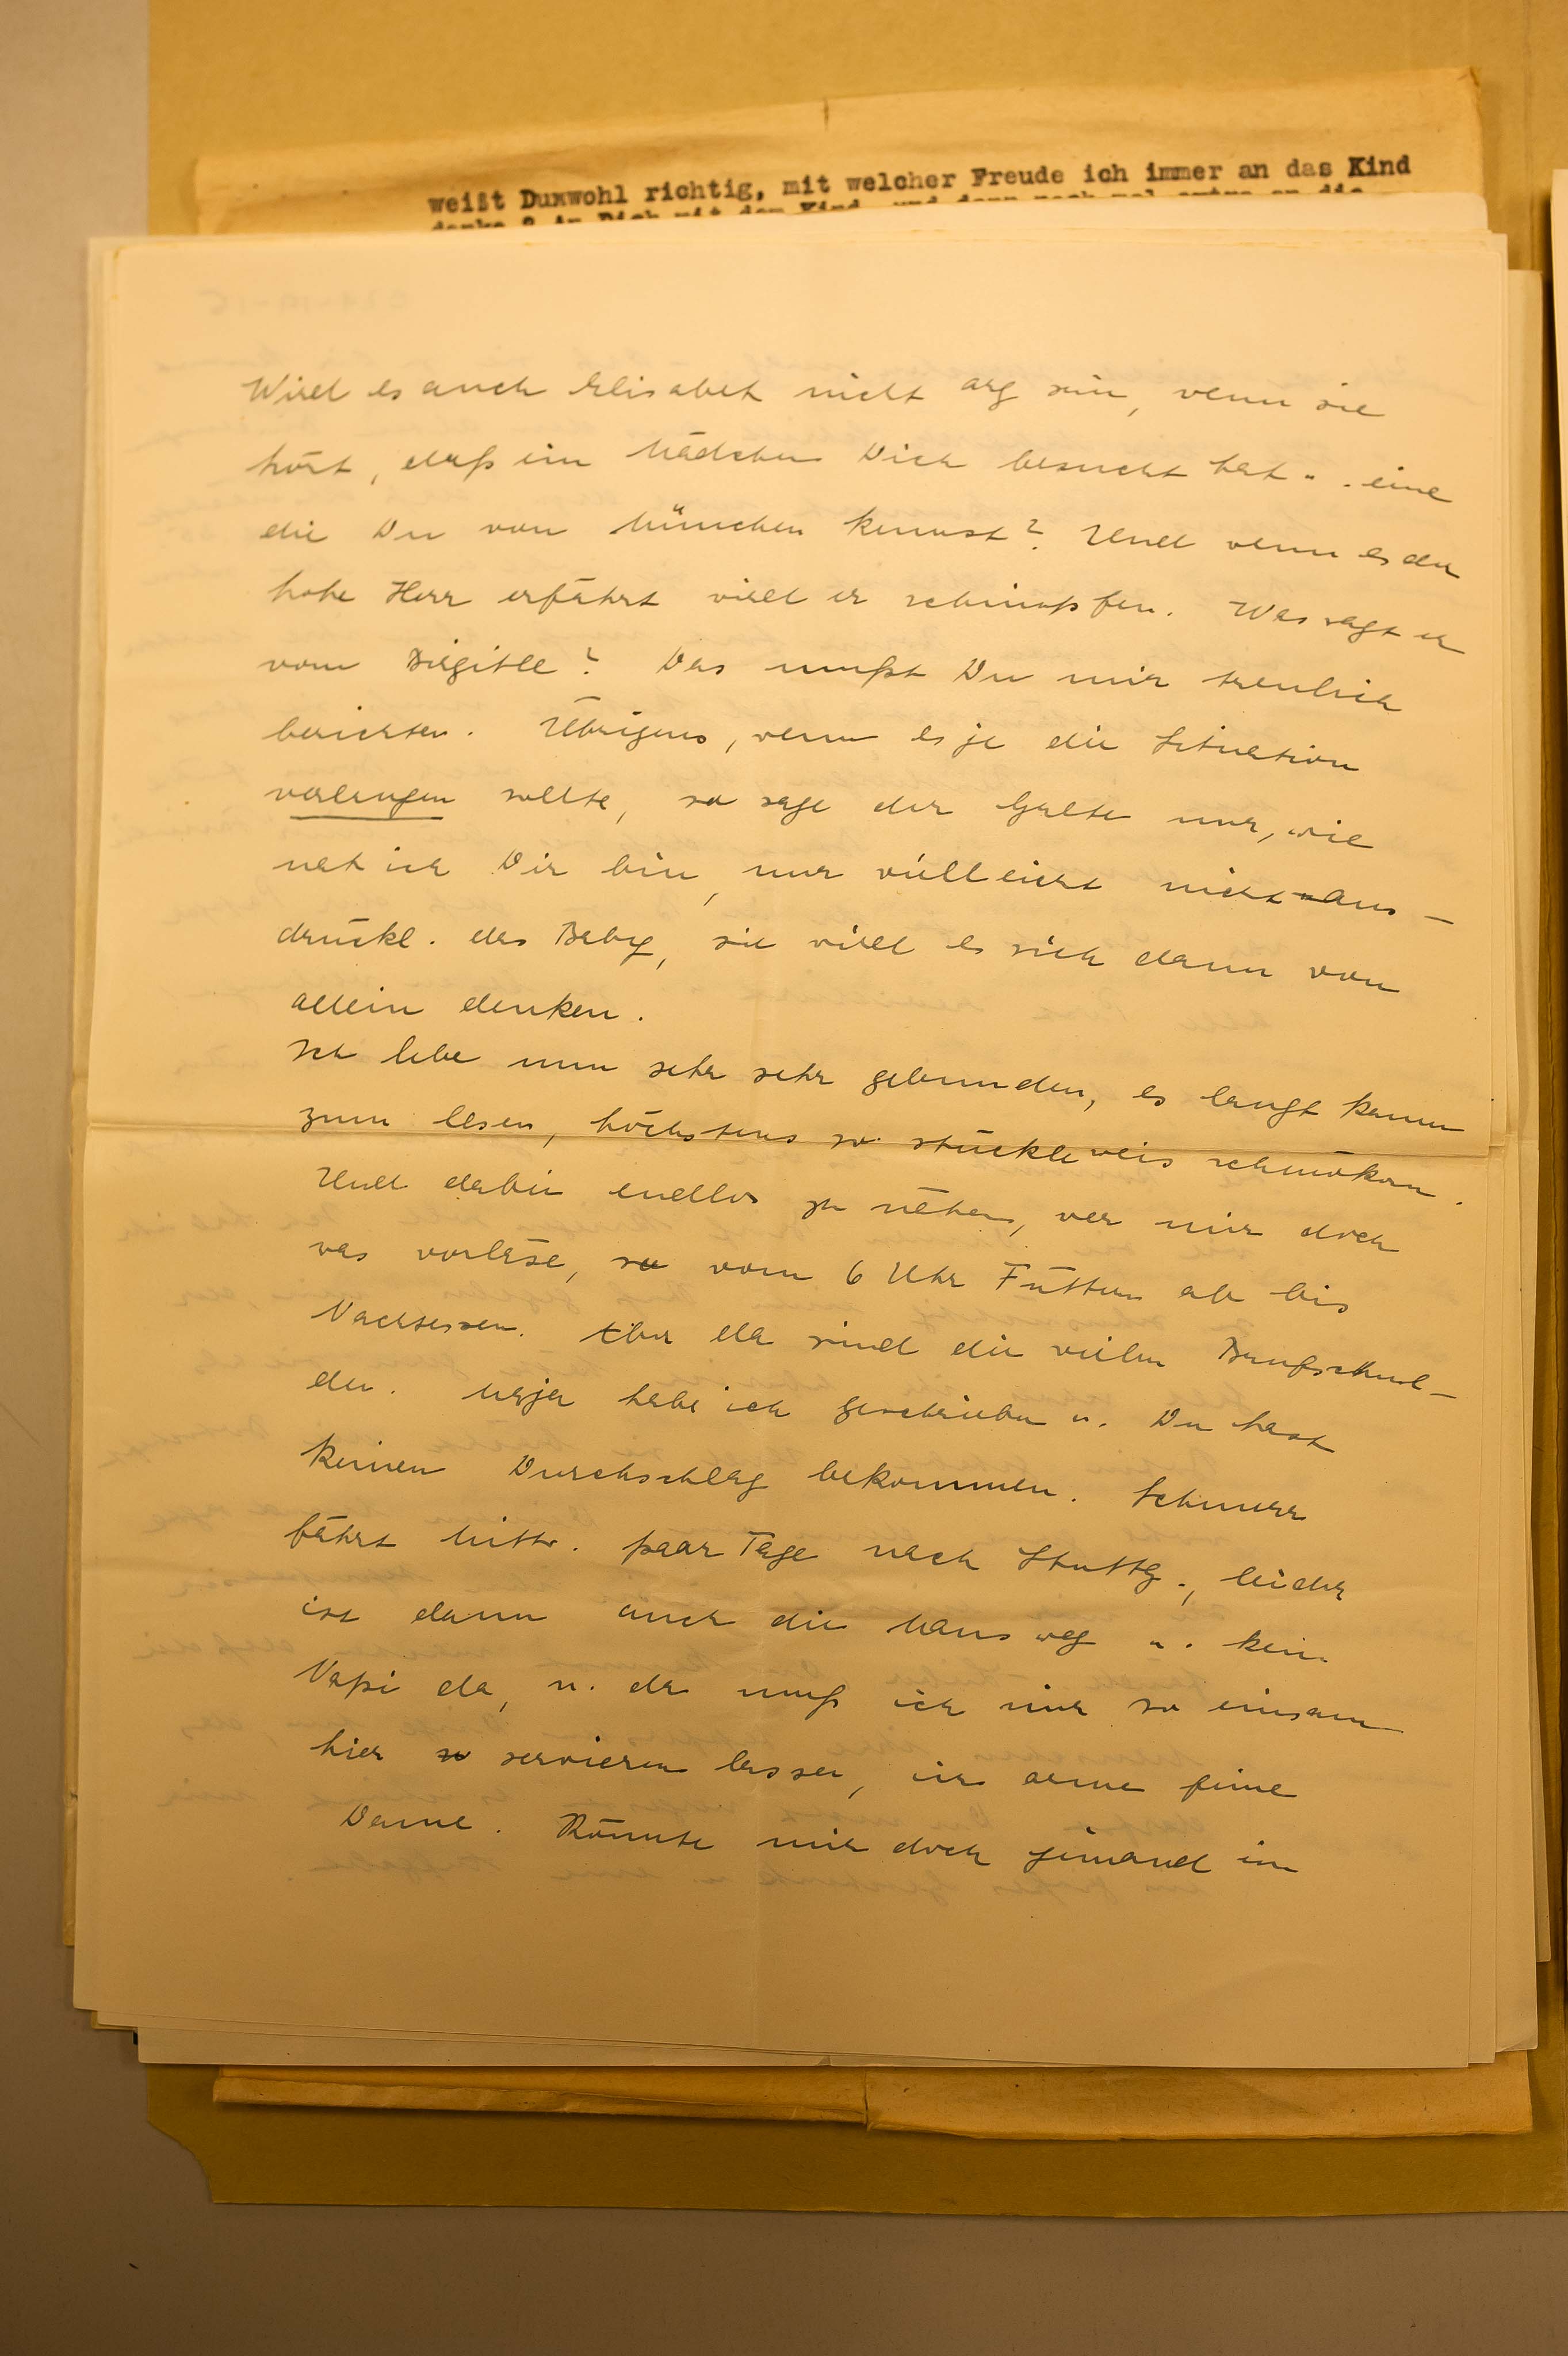 weißt Duxwohl richtig, mit welcher Freude ich immer an das Kind
Wird es auch Elisabet nicht arg sein, wenn sie
hört, daß ein Mädchen Dich besucht hat u. eine
die Du von München kennst? Und wenn es der
hohe Herr erfährt wird er schimpfen. Was sagt er
vom Birgitle? Das mußt Du mir treulich
berichten. Übrigens, wenn es je die Situation
verlangen sollte, so sage der Gräte nur, wie
net ich Dir bin, nur vielleicht nicht aus-
drückl. das Baby, sie wird es sich dann von
allein denken.
Ich lebe nun sehr sehr gebunden, es langt kaum
zum lesen, höchstens so stückleweis schmökern.
Und dabei endlos zu nähen, wer mir doch
was vorläse, so vom 6 Uhr Füttern ab bis
Nachtessen. Aber da sind die vielen Briefschul-
den. Maja habe ich geschrieben u. Du hast
keinen Durchschlag bekommen. Schnurr
fährt Mittw. paar Tage nach Stuttg., leider
ist dann auch die Maus weg u. kein
Vapi da, u. da muß ich mir so einsam
hier servieren lassen, ich arme feine
Dame. Könnte mir doch jemand im